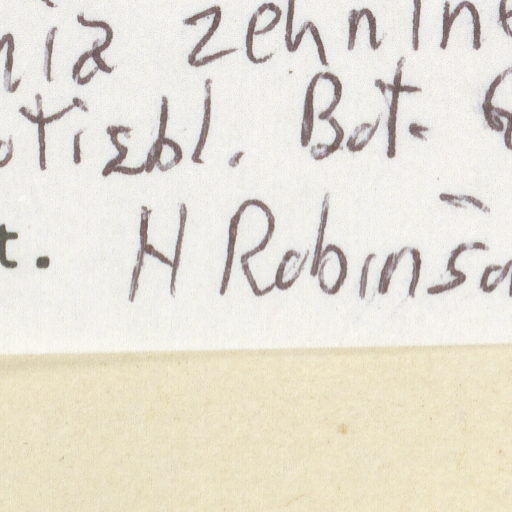 nia zehntne
otizbl. Bot. G
t. H Robinso